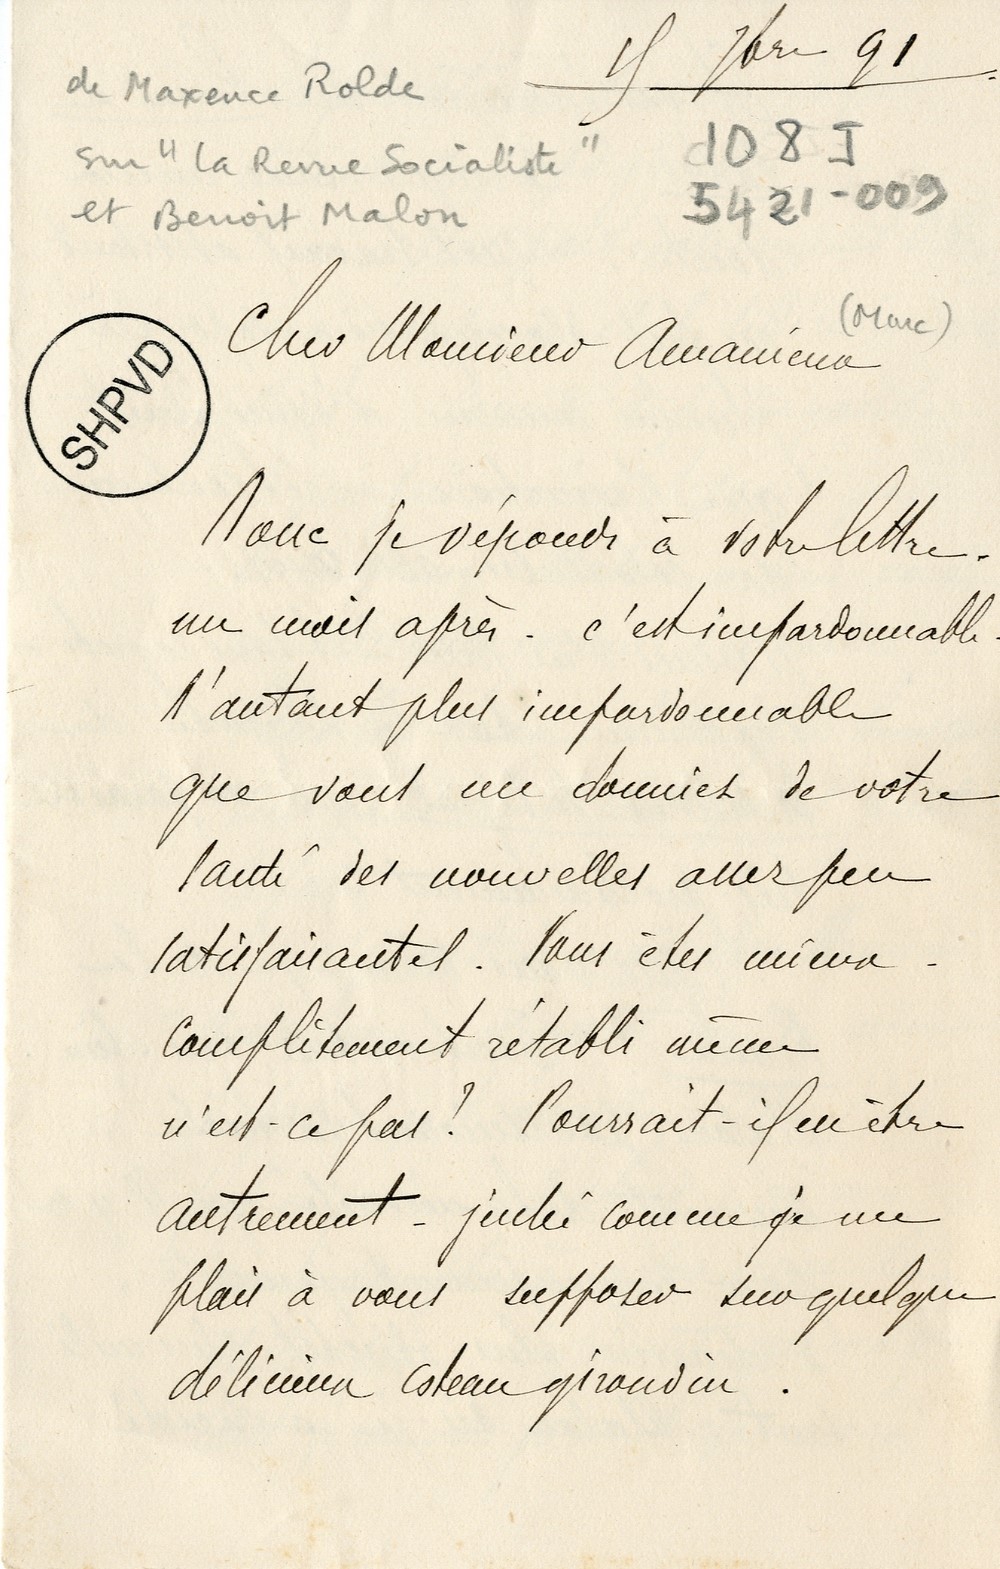 15 7bre 91
de Maxence Rolde
sur "la Revue Socialiste"
et Benoit Malon
108 J
5421-009
(Marc)
Cher Monsieur Amanieux
SHPVD
Donc je réponds à votre lettre -
un mois après - c'est impardonnable -
d'autant plus impardonnable
que vous me donniez de votre
santé des nouvelles assez peu
satisfaisantes. Vous êtes mieux -
complètement rétabli même
n'est-ce pas? Pourrait-il en être
autrement - juché comme je me
plais à vous supposer sur quelque
délicieux coteau girondin.